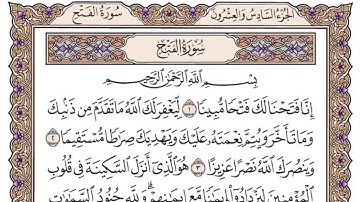 الجُزْءُ السَّادِسُ وَالعِشْرُونَ
سُورَةُ الفَتْحِ
سُورَةُ الفَتْحِ
بِسْمِ اللَّهِ الرَّحْمَٰنِ الرَّحِيمِ
إِنَّا فَتَحْنَا لَكَ فَتْحًا مُّبِينًا ١ لِّيَغْفِرَ لَكَ اللَّهُ مَا تَقَدَّمَ مِن ذَنۢبِكَ
وَمَا تَأَخَّرَ وَيُتِمَّ نِعْمَتَهُۥ عَلَيْكَ وَيَهْدِيَكَ صِرَٰطًا مُّسْتَقِيمًا ٢
وَيَنصُرَكَ اللَّهُ نَصْرًا عَزِيزًا ٣ هُوَ الَّذِىٓ أَنزَلَ السَّكِينَةَ فِى قُلُوبِ
الْمُؤْمِنِينَ لِيَزْدَادُوٓا۟ إِيمَٰنًا مَّعَ إِيمَٰنِهِمْ ۗ وَلِلَّهِ جُنُودُ السَّمَٰوَٰتِ